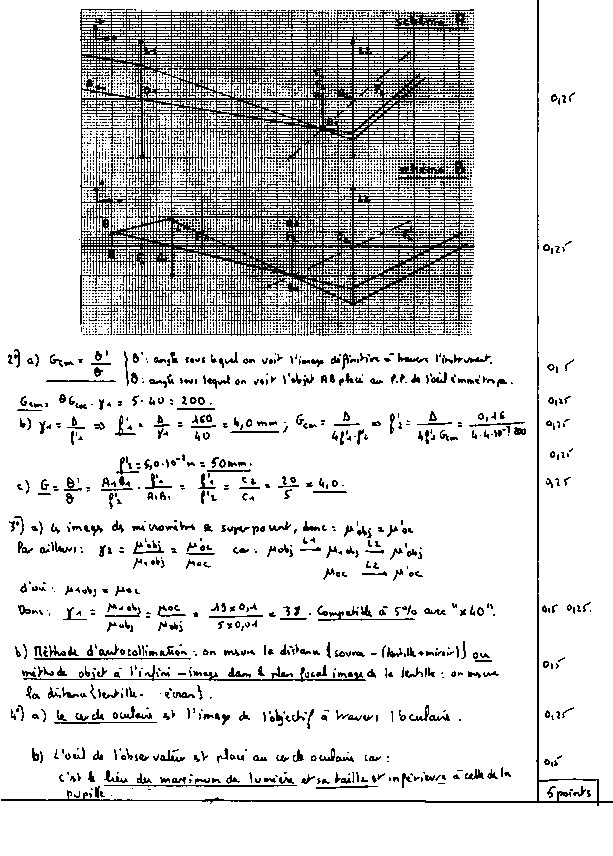 schéma A
L1
L2
0,25
schéma B
L2
0,25
2°) a) Gcm = θ'/θ { θ' : angle sous lequel on voit l'image définitive à travers l'instrument. 0,5
θ : angle sous lequel on voit l'objet AB placé au P.P. de l'œil emmétrope.
Gcm = θGoc · γ1 = 5 · 40 = 200. 0,25
b) γ1 = Δ/f'1 ⇒ f'1 = Δ/γ1 = 160/40 = 4,0 mm ; Gcm = Δ/4f'1·f'2 ⇒ f'2 = Δ/4f'1 Gcm = 0,16/4·4·10⁻³ 200 0,25
f'2 = 5,0·10⁻² m = 50 mm. 0,25
c) G = θ'/θ = A1B1/f'2 · f'1/A1B1 = f'1/f'2 = C2/C1 = 20/5 = 4,0. 0,25
3°) a) Les images des micromètres se superposent, donc : μ'obj = μ'oc
Par ailleurs : γ2 = μ'obj/μ1obj = μ'oc/μoc car : μobj L1→ μ1obj L2→ μ'obj
μoc L2→ μ'oc
d'où : μ1obj = μoc
Donc : γ1 = μ1obj/μobj = μoc/μobj = 19×0,1/5×0,01 = 38. Compatible à 5% avec "×40". 0,5 0,25.
b) Méthode d'autocollimation : on mesure la distance {source - (lentille+miroir)} ou
méthode objet à l'infini - image dans le plan focal image de la lentille : on mesure 0,5
la distance {lentille - écran}.
4°) a) le cercle oculaire est l'image de l'objectif à travers l'oculaire. 0,25
b) L'œil de l'observateur est placé au cercle oculaire car : 0,5
c'est le lieu du maximum de lumière et sa taille est inférieure à celle de la
pupille. 5 points